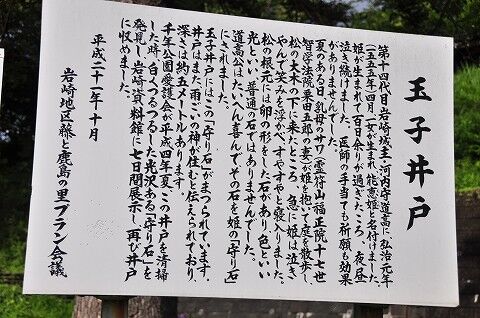 玉子井戸
第十四代目岩崎城主・河内守道高に弘治元年
(一五五五年)四月一女が生まれ、能恵姫と名付けました。
姫が生まれて百日余りが過ぎたころ、夜昼
泣き続けました。医師の手当ても祈願も効果
がありませんでした。
夏のある日、乳母のサワ(霊符山福正院十七世
智学法院栗田五郎の妻)が姫を抱いて庭を散歩し、
松の大木の下に来たところ、急に姫は泣き
やんで笑みを浮かべすやすやと寝入りました。
松の根元には卵の形をした石があり、色といい
光といい、普通の石ではありませんでした。
道高公はたいへん喜んでその石を姫の「守り石」
にされました。
玉子井戸にはこの「守り石」がまつられています。
井戸はまた雨ごいの神が住むと伝えられており、
深さは約五メートルあります。
千年公園愛護会が平成四年夏、この井戸を清掃
した時、白くつるつるした光沢ある「守り石」を
発見し、岩崎資料館に七日間展示し、再び井戸
に収めました。
平成二十一年十月
岩崎地区藤と鹿島の里プラン会議